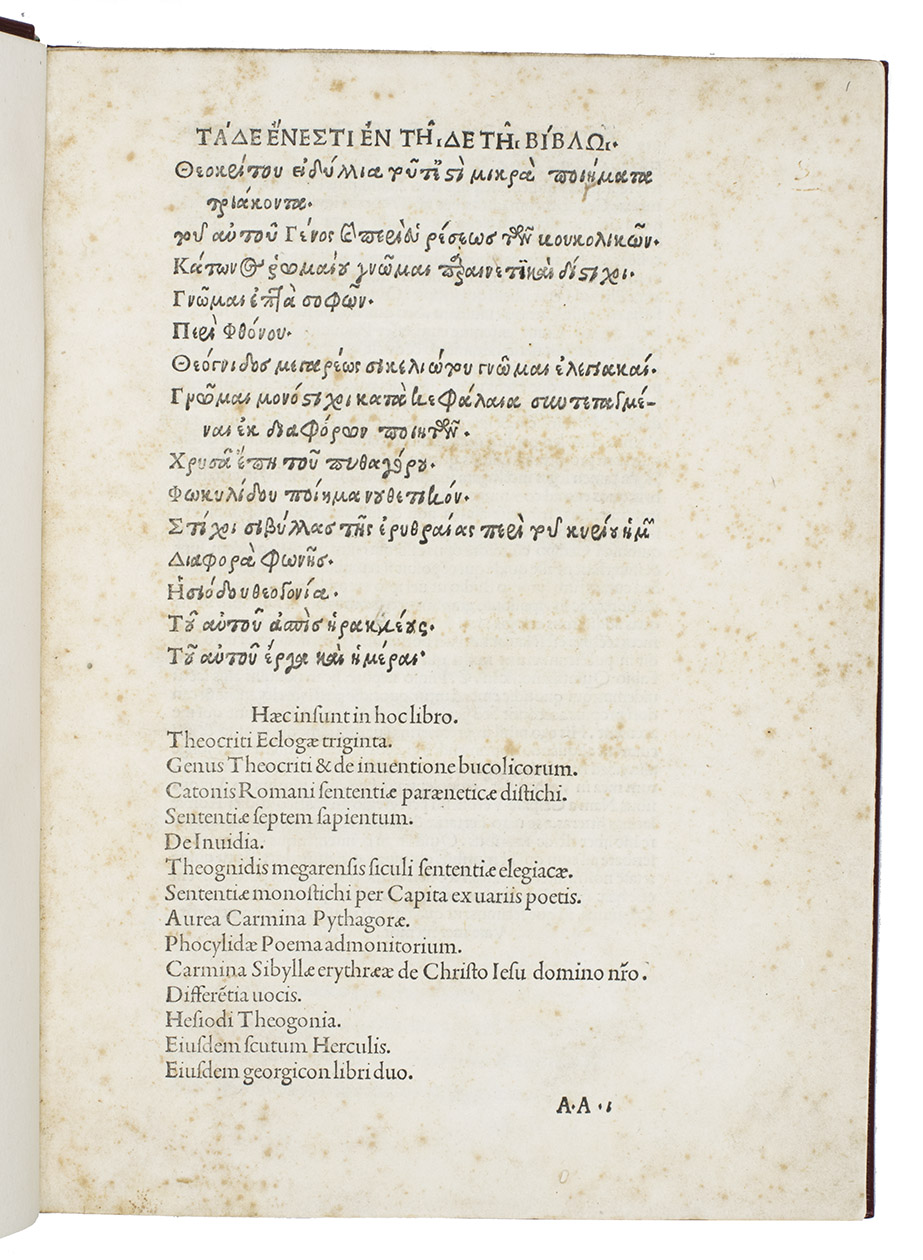 ΤΆΔΕ ἜΝΕΣΤΙ ἘΝ Τῌ͂ΔΕ Τῌ͂ ΒΊΒΛῼ·
Θεοκρίτου εἰδύλλια τοῦτ᾽ἔστὶ μικρὰ ποιήματα
τριάκοντα·
τοῦ αὐτοῦ Γένος καὶ περὶ εὑρέσεως τῶν βουκολικῶν·
Κάτωνος ῥωμαίου γνῶμαι παραινετικαὶ δίστιχοι·
Γνῶμαι ἑπτὰ σοφῶν·
Περὶ Φθόνου·
Θεόγνιδος μεγαρέως σικελιώτου γνῶμαι ἐλεγιακαί·
Γνῶμαι μονόστιχοι κατὰ κεφάλαια συντεταγμέ-
ναι ἐκ διαφόρων ποιητῶν·
Χρυσᾶ ἔπη τοῦ πυθαγόρου·
Φωκυλίδου ποίημα νουθετικόν·
Στίχοι σιβύλλας τῆς ἐρυθραίας περὶ τοῦ κυρίου ἡμῶν
Διαφορὰ φωνῆς·
Ἡσιόδου θεογονία·
Τοῦ αὐτοῦ ἀσπὶς ἡρακλέους·
Τοῦ αὐτοῦ ἔργα καὶ ἡμέραι·
Hæc insunt in hoc libro.
Theocriti Eclogæ triginta.
Genus Theocriti & de inuentione bucolicorum.
Catonis Romani sententiæ paræneticæ distichi.
Sententiæ septem sapientum.
De Inuidia.
Theognidis megarensis siculi sententiæ elegiacæ.
Sententiæ monostichi per Capita ex uariis poetis.
Aurea Carmina Pythagoræ.
Phocylidæ Poema admonitorium.
Carmina Sibyllæ erythrææ de Christo Iesu domino nr̃o.
Differẽtia uocis.
Hesiodi Theogonia.
Eiusdem scutum Herculis.
Eiusdem georgicon libri duo.
A·A·i